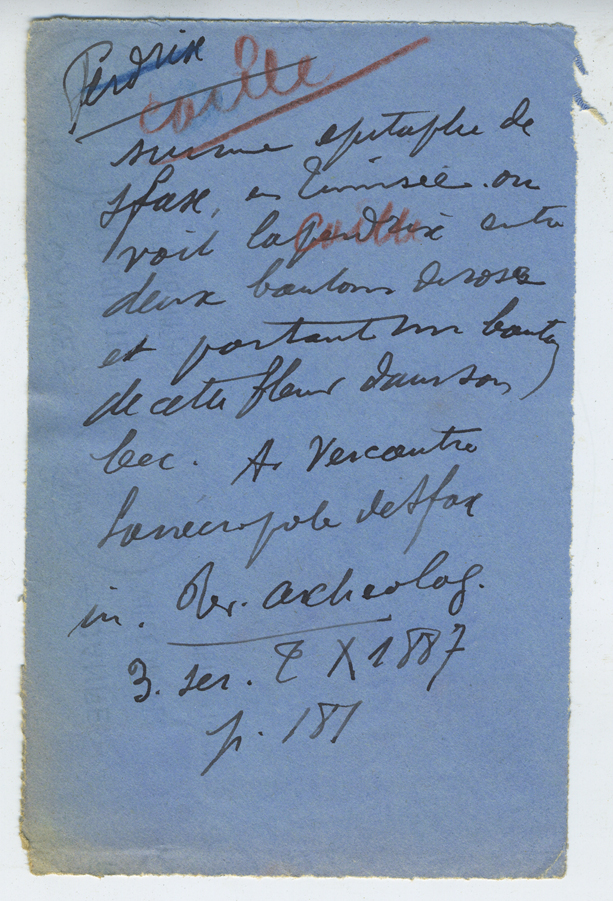 Perdrix
caille
sur une epitaphe de
Sfax, en Tunisie. on
voit la perdrix entre
caille
deux boutons de roses
et portant un bouton
de cette fleur dans son
bec. A. Vercoutre
La necropole de Sfax
in. Rev. archeolog.
3. ser. T X 1887
p. 181